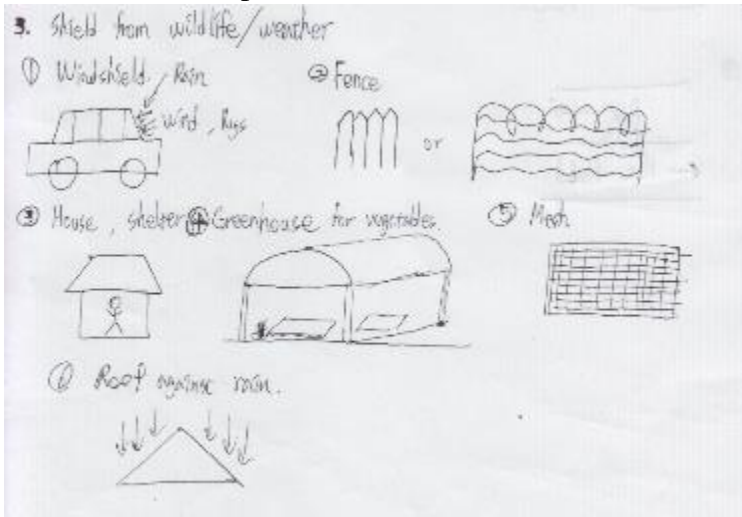 3. Shield from wildlife/weather
① Windshield
Rain
wind, Bugs
② Fence
or
③ House, shelter
④ Greenhouse for vegetables.
⑤ Mesh
⑥ Roof against rain.